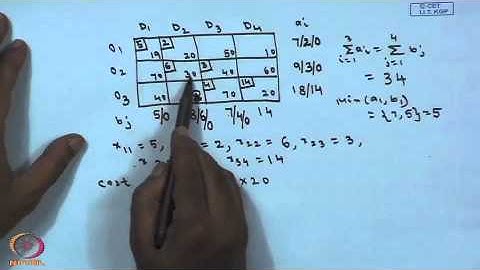 © CET
I.I.T. KGP
D1 D2 D3 D4 ai
O1 5 19 2 20 50 10 7/2/0
O2 70 6 30 3 40 60 9/3/0
O3 40 4 70 14 20 18/14
bj 5/0 /6/0 7/4/0 14
3 Σ ai i=1 = 4 Σ bj j=1
= 34
min(a1, b1)
= {7,5} = 5
x11 = 5, = 2, x22 = 6, x23 = 3,
x34 = 14
cost x20